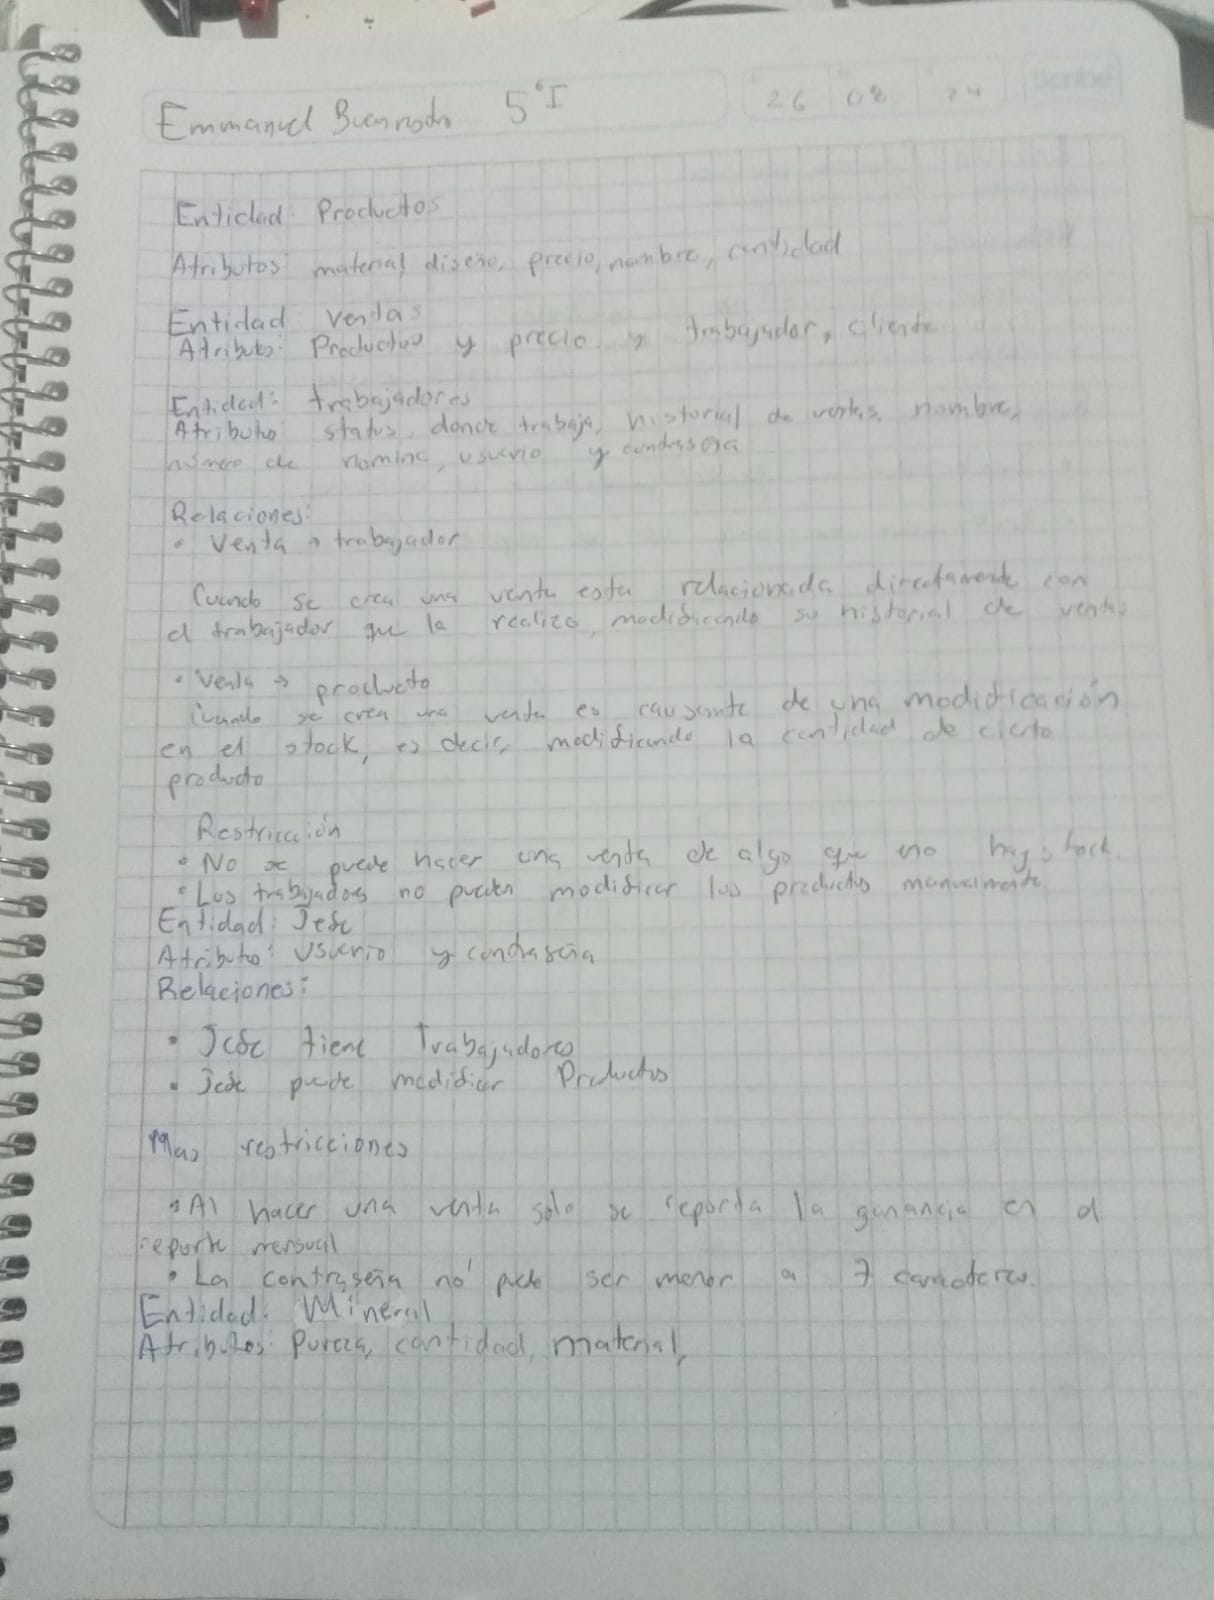 Emmanuel Buenrostro 5°I 26 08 24
Entidad: Productos
Atributos: material, diseño, precio, nombre, cantidad
Entidad: ventas
Atributos: Productos y precio y trabajador, cliente
Entidad: trabajadores
Atributo: status, donde trabaja, historial de ventas, nombre,
número de nomina, usuario y contraseña
Relaciones:
• Venta → trabajador
Cuando se crea una venta esta relacionada directamente con
el trabajador que la realizo, modificando su historial de ventas
• Venta → producto
Cuando se crea una venta es causante de una modificación
en el stock, es decir, modificando la cantidad de cierto
producto
Restricción
• No se puede hacer una venta de algo que no hay stock.
• Los trabajadores no pueden modificar los productos manualmente
Entidad: Jefe
Atributo: Usuario y contraseña
Relaciones:
• Jefe tiene Trabajadores
• Jefe puede modificar Productos
Mas restricciones
• Al hacer una venta solo se reporta la ganancia en el
reporte mensual
• La contraseña no puede ser menor a 7 caracteres.
Entidad: Mineral
Atributos: Pureza, cantidad, material,